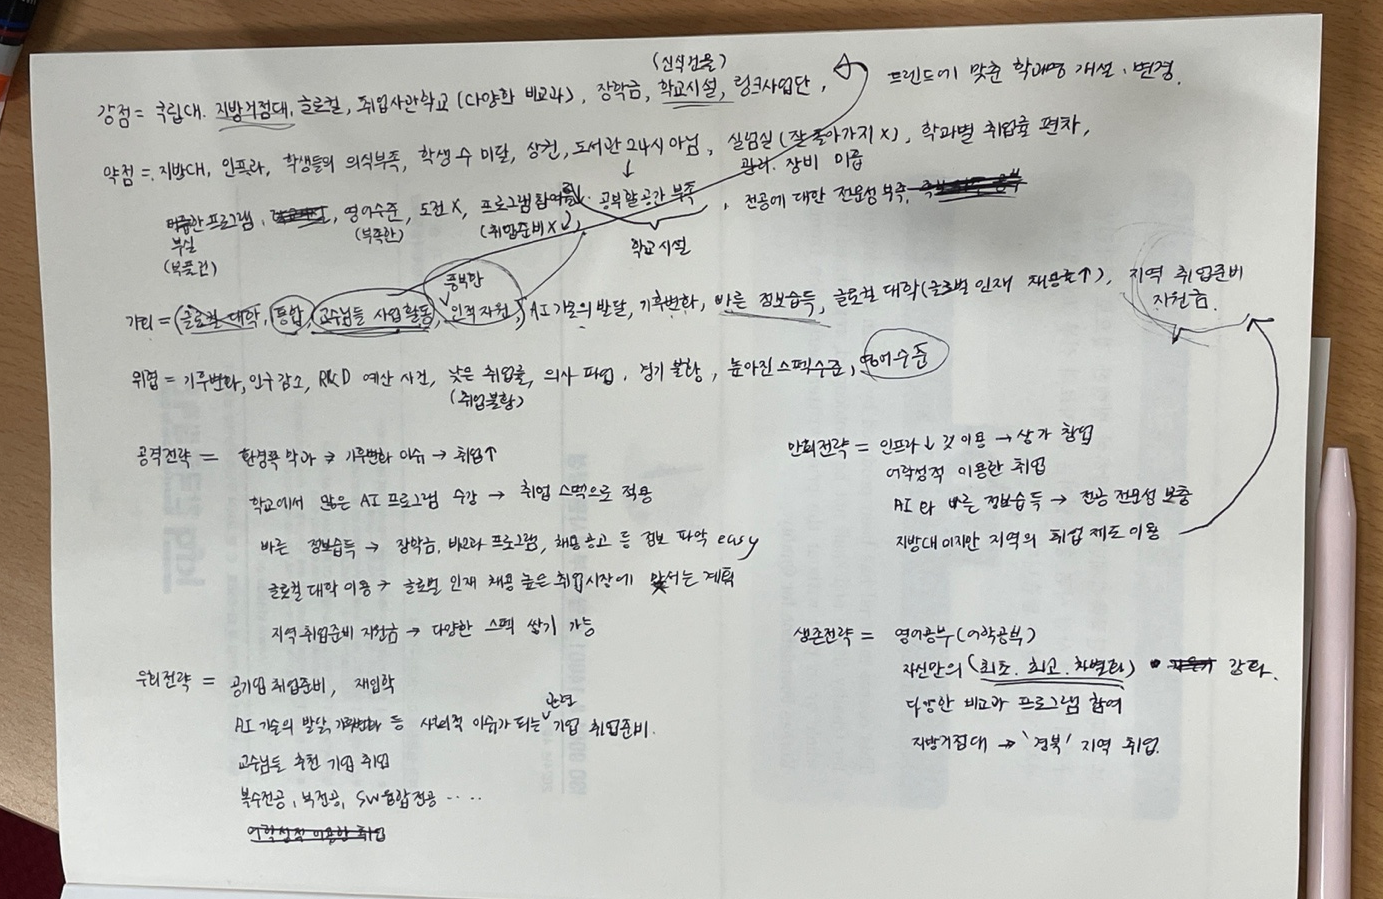 (신식건물)
강점 = 국립대, 지방거점대, 글로컬, 취업사관학교 (다양한 비교과), 장학금, 학교시설, 링크사업단, 트렌드에 맞춘 학과명 개설·변경.
약점 = 지방대, 인프라, 학생들의 의식부족, 학생 수 미달, 상권, 도서관 24시 아님, 실험실 (잘 돌아가지 X), 학과별 취업률 편차,
관리. 장비 미흡
프로그램, 영어수준, 도전 X, 프로그램 참여율↓, 공부할 공간 부족, 전공에 대한 전문성 부족.
부실 (부족한) (취업준비 X↓) 학교시설
풍부한
기회 = (글로컬 대학, 통합, 교수님들 사업 활동, 인적자원,) AI 기술의 발달, 기후변화, 빠른 정보습득, 글로컬 대학 (글로벌 인재 채용률↑), 지역 취업준비
지원금.
위협 = 기후변화, 인구감소, R&D 예산 사건, 낮은 취업률, 의사 파업, 경기 불황, 높아진 스펙수준, 영어수준
(취업불황)
공격전략 = 환경쪽 학과 → 기후변화 이슈 → 취업↑
학교에서 많은 AI 프로그램 수강 → 취업 스펙으로 적용
빠른 정보습득 → 장학금, 비교과 프로그램, 채용공고 등 정보 파악 easy
글로컬 대학 이용 → 글로벌 인재 채용 높은 취업시장에 앞서는 계획
지역 취업준비 지원금 → 다양한 스펙 쌓기 가능
우회전략 = 공기업 취업준비, 재입학
관련
AI 기술의 발달, 기후변화 등 사회적 이슈가 되는 기업 취업준비.
교수님들 추천 기업 취업
복수전공, 부전공, SW융합전공 ····
어학성적 이용한 취업
만회전략 = 인프라↓ 것 이용 → 상가 창업
어학성적 이용한 취업
AI와 빠른 정보습득 → 전공 전문성 보충
지방대이지만 지역의 취업 제도 이용
생존전략 = 영어공부 (어학공부)
자신만의 (최초. 최고. 차별화) 강화.
다양한 비교과 프로그램 참여
지방거점대 → '경북' 지역 취업.